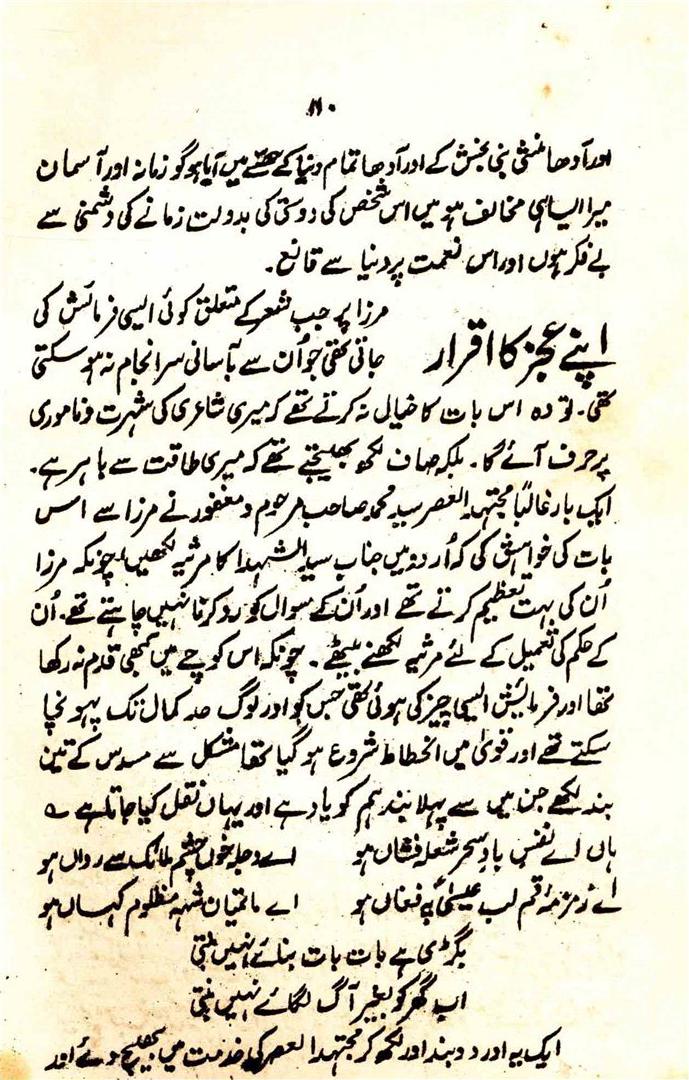 ۱۱۰
اور آدھا منشی نبی بخش کے اور آدھا تمام دنیا کے حصے میں آیا ہو گو زمانہ اور آسمان
میرا ایسا ہی مخالف ہو میں اس شخص کی دوستی کی بدولت زمانے کی دشمنی سے
بے فکر ہوں اور اس نعمت پر دنیا سے قانع۔
اپنے عجز کا اقرار
مرزا پر جب شعر کے متعلق کوئی ایسی فرمائش کی
جاتی تھی جو اُن سے بآسانی سرانجام نہ ہو سکتی
تھی۔ تو وہ اس بات کا خیال نہ کرتے تھے کہ میری شاعری کی شہرت و ناموری
پر حرف آئے گا۔ بلکہ صاف لکھ بھیجتے تھے کہ میری طاقت سے باہر ہے۔
ایک بار غالباً مجتہد العصر سید محمد صاحب مرحوم و مغفور نے مرزا سے اس
بات کی خواہش کی کہ اُردو میں جناب سید الشہدا کا مرثیہ لکھیں، چونکہ مرزا
اُن کی بہت تعظیم کرتے تھے اور اُن کے سوال کو رد کرنا نہیں چاہتے تھے۔ اُن
کے حکم کی تعمیل کے لئے مرثیہ لکھنے بیٹھے۔ چونکہ اس کوچے میں کبھی قدم نہ رکھا
تھا اور فرمایش ایسی چیز کی ہوئی تھی جس کو اور لوگ حد کمال تک پہونچا
سکتے تھے اور قویٰ میں انحطاط شروع ہو گیا تھا مشکل سے مسدس کے تین
بند لکھے جن میں سے پہلا بند ہم کو یاد ہے اور یہاں نقل کیا جاتا ہے ؎
ہاں اے نفسِ بادِ سحر شعلہ فشاں ہو اے دجلہ خوں چشم ملائک سے رواں ہو
اے زمزمۂ قم لب عیسیٰؑ پہ فغاں ہو اے ماتمیان شہہ مظلوم کہاں ہو
بگڑی ہے بات بات بنائے نہیں بنتی
اب گھر کو بغیر آگ لگائے نہیں بنتی
ایک یہ اور دو بند اور لکھ کر مجتہد العصر کی خدمت میں بھیج دئے اور